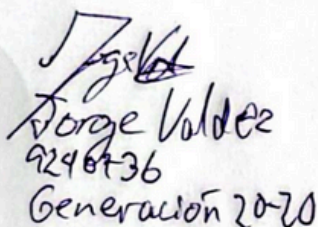 Jorge Valdez
9240736
Generación 20-20